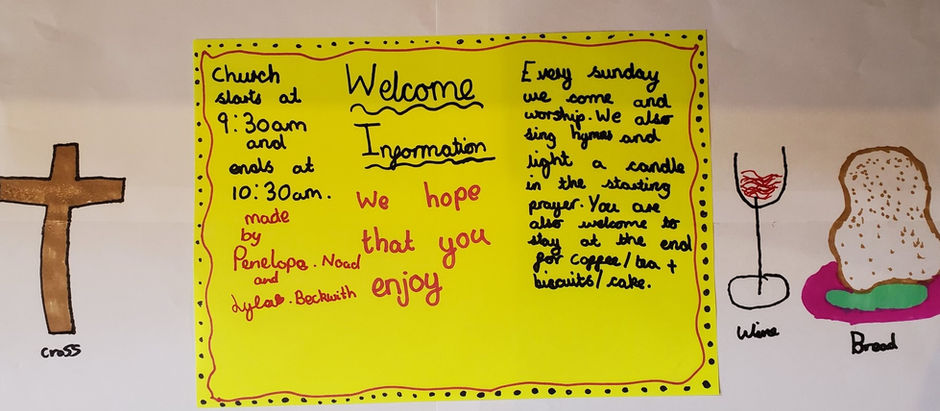 Church
starts at
9:30am
and
ends at
10:30am.
made
by
Penelope. Noad
and
Lyla. Beckwith
Welcome
Information
We hope
that you
enjoy
Every sunday
we come and
worship. We also
sing hymns and
light a candle
in the starting
prayer. You are
also welcome to
stay at the end
for coffee/tea +
biscuits/cake.
cross
Wine
Bread